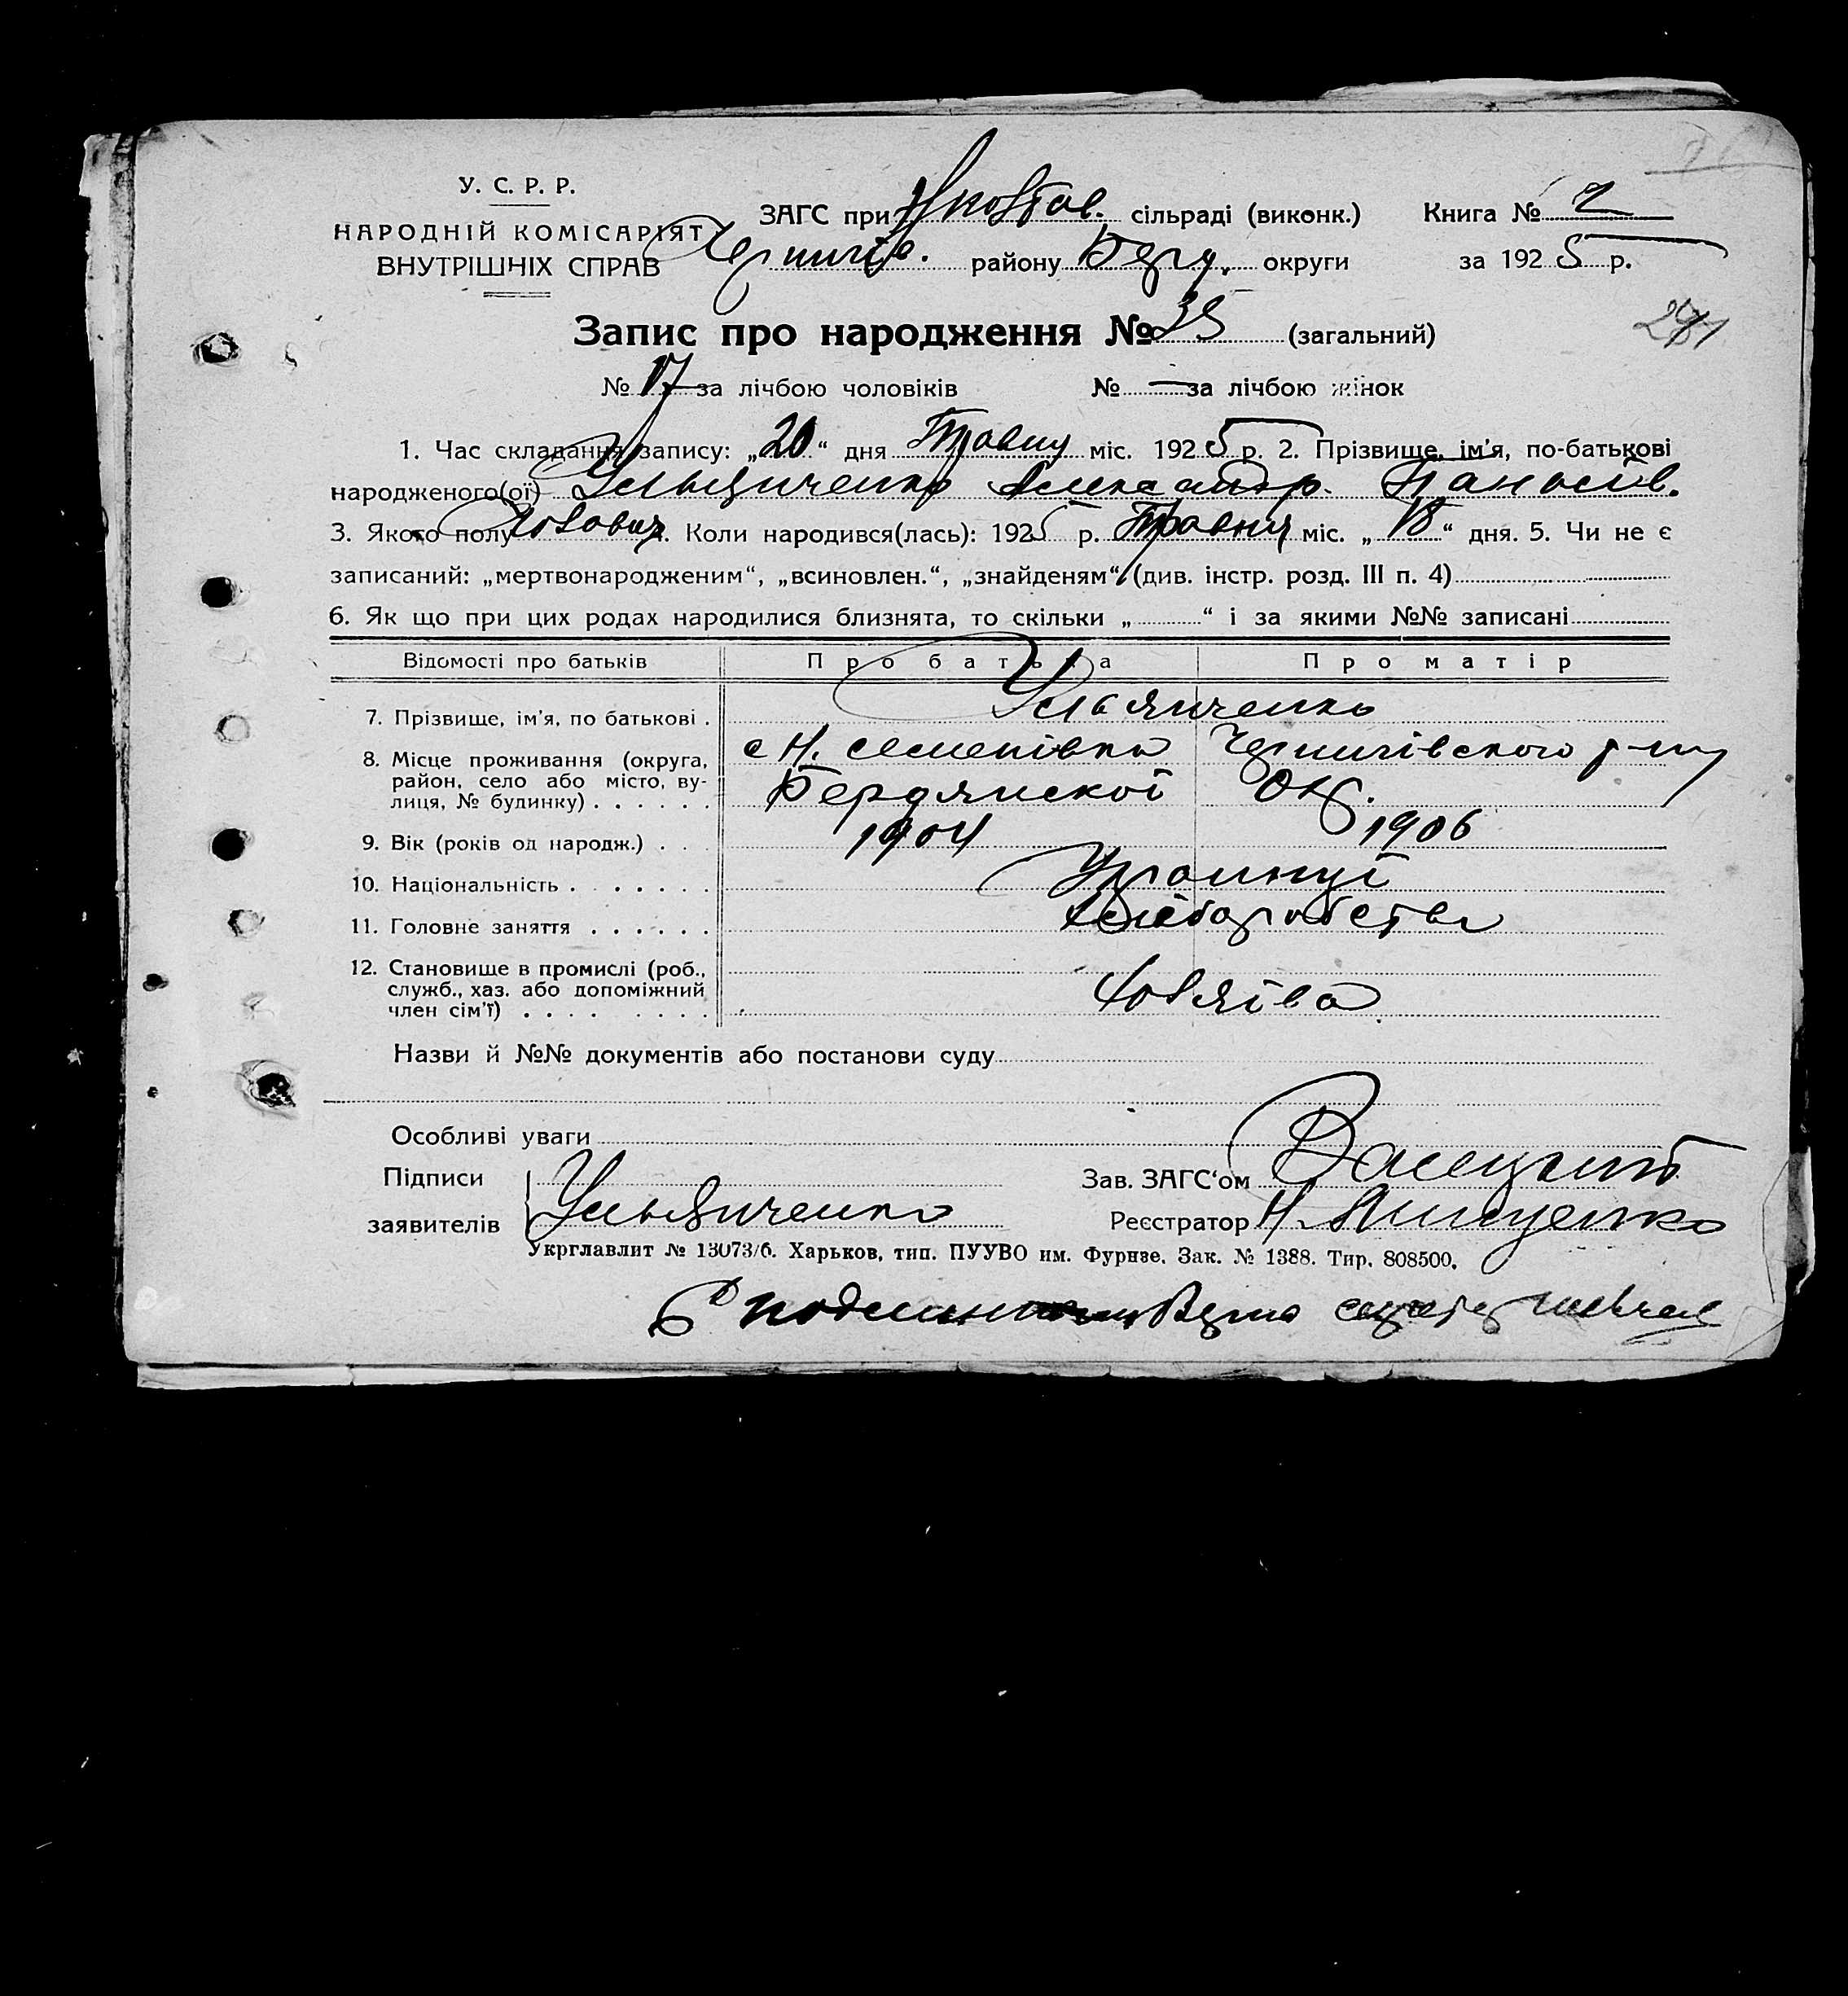 У. С. Р. Р.
НАРОДНІЙ КОМІСАРІЯТ
ВНУТРІШНІХ СПРАВ
ЗАГС при сільраді (виконк.) Книга № 2
Чернигів. району Берд. округи за 1925 р.
Запис про народження № 35 (загальний)
281
№ 17 за лічбою чоловіків № — за лічбою жінок
1. Час складання запису: „20“ дня Травня міс. 1925 р. 2. Прізвище, ім'я, по-батькові
народженого(ої) Ульянченко Александр. Панасів.
3. Якого полу Чоловіч. 4. Коли народився(лась): 1925 р. Травня міс. „18“ дня. 5. Чи не є
записаний: „мертвонародженим“, „всиновлен.“, „знайденям“ (див. інстр. розд. III п. 4)
6. Як що при цих родах народилися близнята, то скільки „ “ і за якими №№ записані
Відомості про батьків Про батька Про матір
7. Прізвище, ім'я, по батькові . Ульянченко
8. Місце проживання (округа, район, село або місто, вулиця, № будинку) . . . . . . с Н. Семенівка Чернигівського р-ну
Бердянської Окр.
9. Вік (років од народж.) . . . 1904 1906
10. Національність . . . . . . . Українці
11. Головне заняття . . . . . . Хліборобство
12. Становище в промислі (роб.,
служб., хаз. або допоміжний
член сім'ї) . . . . . . . .
Назви й №№ документів або постанови суду
Особливі уваги
Підписи
заявителів Ульянченко
Зав. ЗАГС'ом
Реєстратор Н. Мищенко
Укрглавлит № 13073/б. Харьков, тип. ПУУВО им. Фурнзе. Зак. № 1388. Тир. 808500.